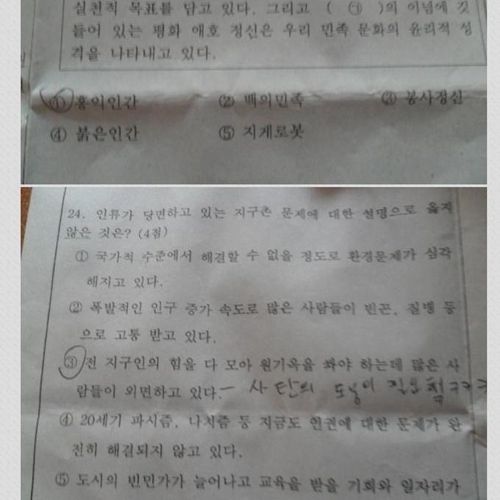 실천적 목표를 담고 있다. 그리고 ( ㉠ )의 이념에 깃
들어 있는 평화 애호 정신은 우리 민족 문화의 윤리적 성
격을 나타내고 있다.
① 홍익인간 ② 백의민족 ③ 봉사정신
④ 붉은인간 ⑤ 지게로봇
24. 인류가 당면하고 있는 지구촌 문제에 대한 설명으로 옳지
않은 것은? (4점)
① 국가적 수준에서 해결할 수 없을 정도로 환경문제가 심각
해지고 있다.
② 폭발적인 인구 증가 속도로 많은 사람들이 빈곤, 질병 등
으로 고통 받고 있다.
③ 전 지구인의 힘을 다 모아 원기옥을 쏴야 하는데 많은 사
람들이 외면하고 있다. - 사탄의 도움이 필요
④ 20세기 파시즘, 나치즘 등 지금도 인권에 대한 문제가 완
전히 해결되지 않고 있다.
⑤ 도시의 빈민가가 늘어나고 교육을 받을 기회와 일자리가